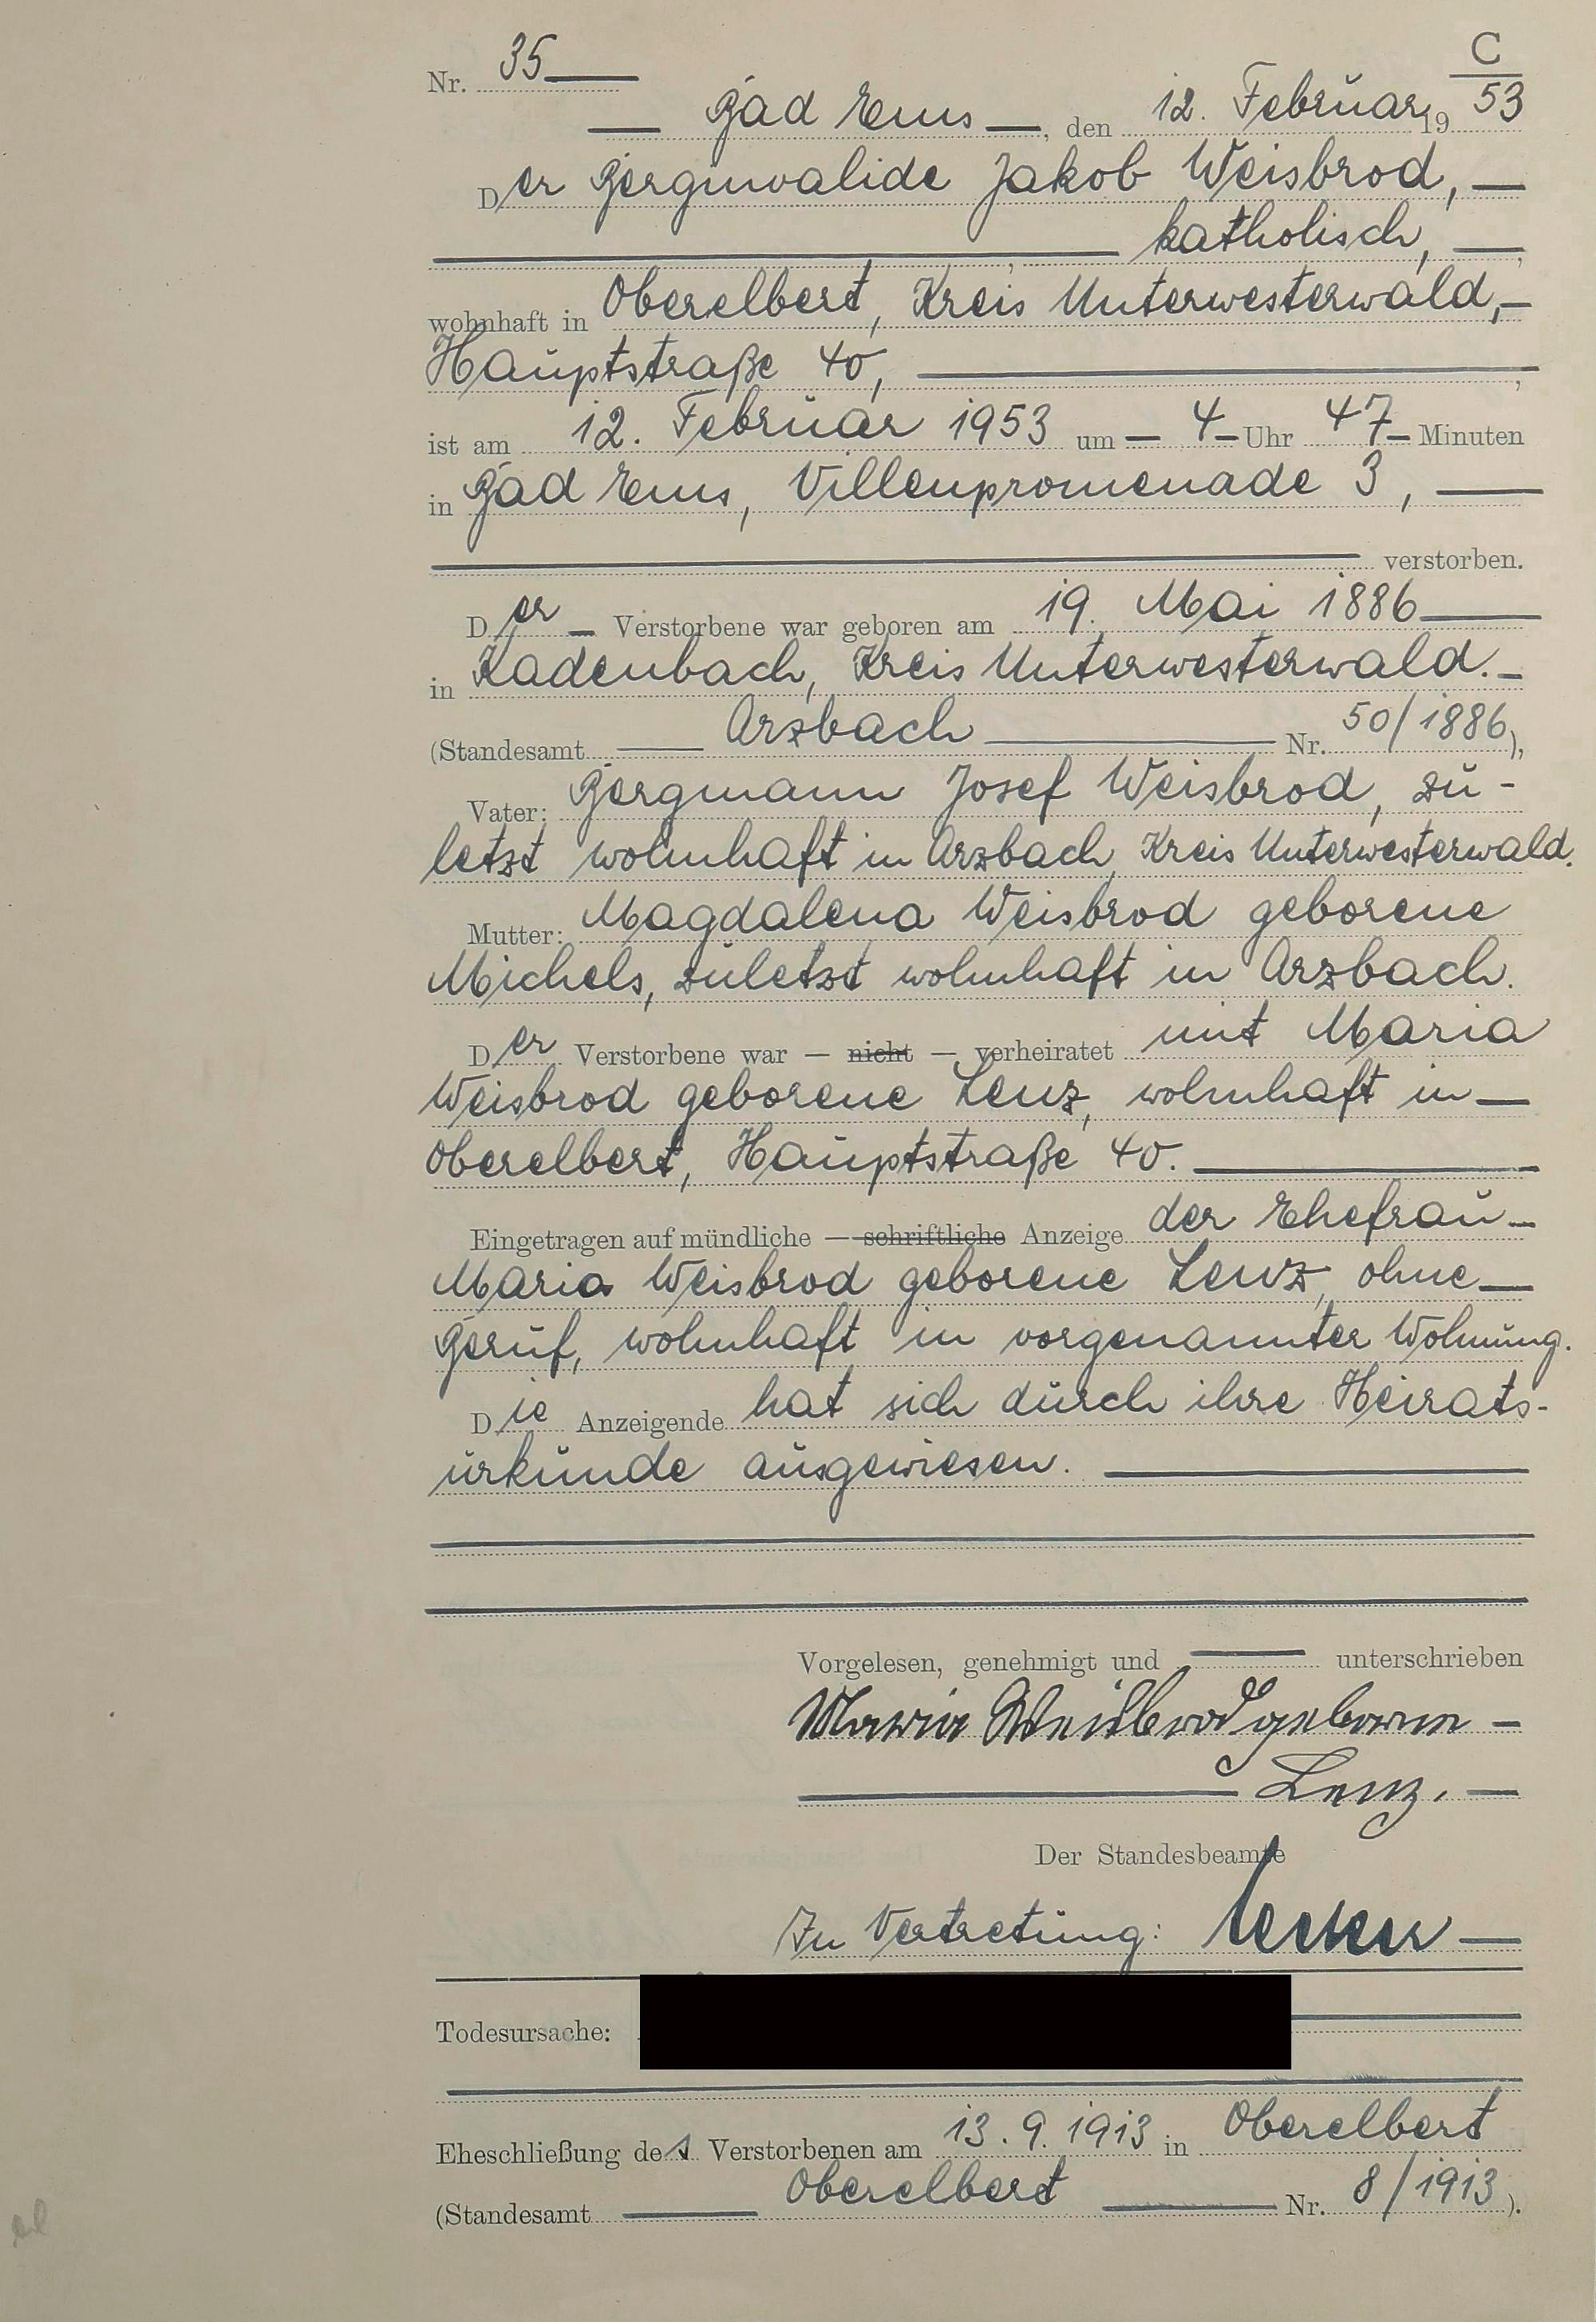 C
Nr. 35
Bad Ems, den 12. Februar 1953
Der Berginvalide Jakob Weisbrod,
katholisch,
wohnhaft in Oberelbert, Kreis Unterwesterwald,
Hauptstraße 40,
ist am 12. Februar 1953 um 4 Uhr 47 Minuten
in Bad Ems, Villenpromenade 3,
verstorben.
Der Verstorbene war geboren am 19. Mai 1886
in Kadenbach, Kreis Unterwesterwald.
(Standesamt Arzbach Nr. 50/1886),
Vater: Bergmann Josef Weisbrod, zu-
letzt wohnhaft in Arzbach, Kreis Unterwesterwald.
Mutter: Magdalena Weisbrod geborene
Michels, zuletzt wohnhaft in Arzbach.
Der Verstorbene war — nicht — verheiratet mit Maria
Weisbrod geborene Lenz, wohnhaft in
Oberelbert, Hauptstraße 40.
Eingetragen auf mündliche — schriftliche Anzeige der Ehefrau
Maria Weisbrod geborene Lenz, ohne
Beruf, wohnhaft in vorgenannter Wohnung.
Die Anzeigende hat sich durch ihre Heirats-
urkunde ausgewiesen.
Vorgelesen, genehmigt und unterschrieben
Maria Weisbrod geborene
Lenz.
Der Standesbeamte
In Vertretung:
Todesursache:
Eheschließung des Verstorbenen am 13.9.1913 in Oberelbert
(Standesamt Oberelbert Nr. 8/1913).